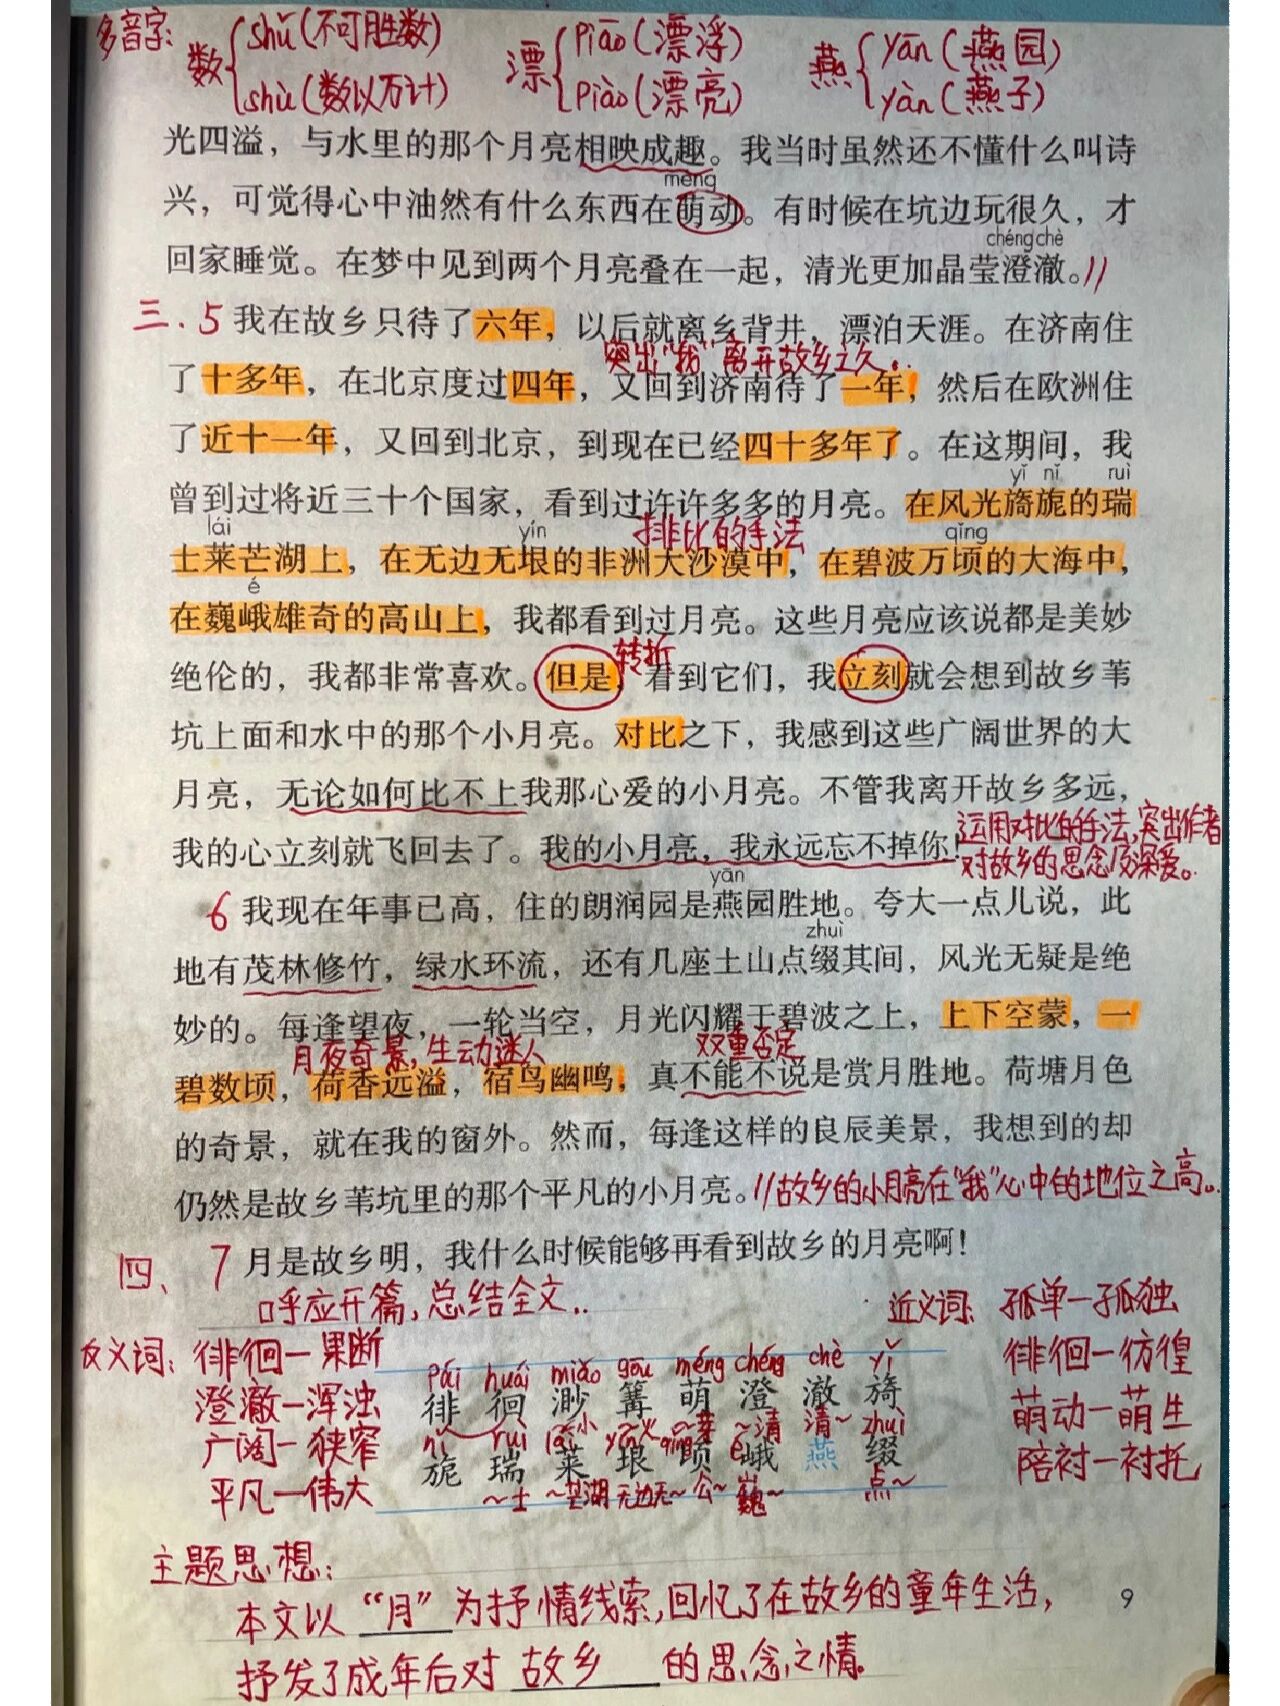 多音字: 数 shǔ(不可胜数) shù(数以万计) 漂 piāo(漂浮) piào(漂亮) 燕 yān(燕园) yàn(燕子)
光四溢，与水里的那个月亮相映成趣。我当时虽然还不懂什么叫诗
méng
兴，可觉得心中油然有什么东西在萌动。有时候在坑边玩很久，才
chéng chè
回家睡觉。在梦中见到两个月亮叠在一起，清光更加晶莹澄澈。//
三. 5 我在故乡只待了六年，以后就离乡背井，漂泊天涯。在济南住
突出"我"离开故乡之久..
了十多年，在北京度过四年，又回到济南待了一年，然后在欧洲住
了近十一年，又回到北京，到现在已经四十多年了。在这期间，我
yǐ nǐ ruì
曾到过将近三十个国家，看到过许许多多的月亮。在风光旖旎的瑞
lái yín 排比的手法 qǐng
士莱芒湖上，在无边无垠的非洲大沙漠中，在碧波万顷的大海中，
é
在巍峨雄奇的高山上，我都看到过月亮。这些月亮应该说都是美妙
转折
绝伦的，我都非常喜欢。但是，看到它们，我立刻就会想到故乡苇
坑上面和水中的那个小月亮。对比之下，我感到这些广阔世界的大
月亮，无论如何比不上我那心爱的小月亮。不管我离开故乡多远，
我的心立刻就飞回去了。我的小月亮，我永远忘不掉你！
运用对比的手法,突出作者
对故乡的思念及深爱。
yān
6 我现在年事已高，住的朗润园是燕园胜地。夸大一点儿说，此
zhuì
地有茂林修竹，绿水环流，还有几座土山点缀其间，风光无疑是绝
妙的。每逢望夜，一轮当空，月光闪耀于碧波之上，上下空蒙，一
月夜奇景,生动迷人 双重否定
碧数顷，荷香远溢，宿鸟幽鸣，真不能不说是赏月胜地。荷塘月色
的奇景，就在我的窗外。然而，每逢这样的良辰美景，我想到的却
仍然是故乡苇坑里的那个平凡的小月亮。//故乡的小月亮在"我"心中的地位之高。
四、 7 月是故乡明，我什么时候能够再看到故乡的月亮啊！
呼应开篇,总结全文..
近义词: 孤单—孤独
徘徊—彷徨
萌动—萌生
陪衬—衬托
反义词: 徘徊—果断
澄澈—浑浊
广阔—狭窄
平凡—伟大
pái huái miǎo gōu méng chéng chè yǐ
徘 徊 渺 篝 萌 澄 澈 旖
~小 ~火 ~芽 ~清 清~
nǐ ruì lái yín qǐng é zhuì
旎 瑞 莱 垠 顷 峨 燕 缀
~士 ~芒湖 无边无~ 公~ 巍~ 点~
主题思想:
本文以 "月" 为抒情线索,回忆了在故乡的童年生活,
9
抒发了成年后对 故乡 的思念之情。